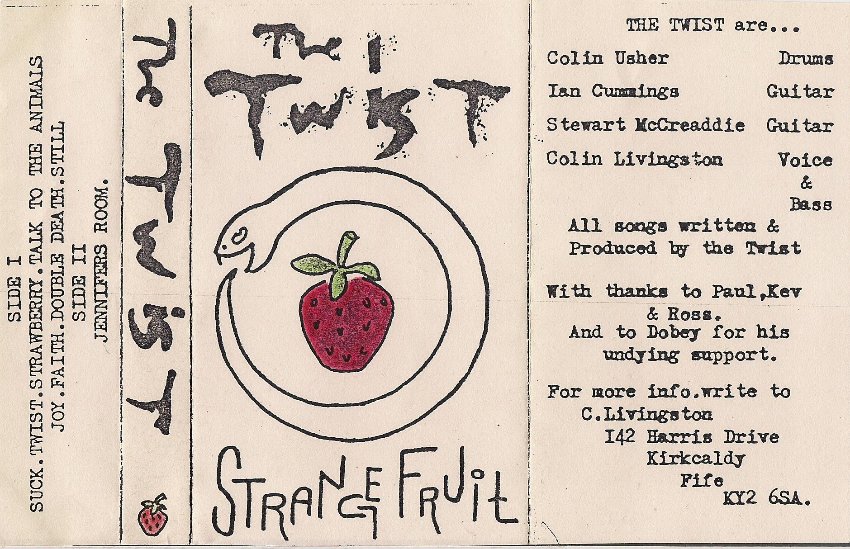 SIDE I
SUCK.TWIST.STRAWBERRY.TALK TO THE ANIMALS
JOY.FAITH.DOUBLE DEATH.STILL
SIDE II
JENNIFERS ROOM.
The TwisT
The
TwisT
STRANGE FRUit
THE TWIST are...
Colin Usher Drums
Ian Cummings Guitar
Stewart McCreaddie Guitar
Colin Livingston Voice
&
Bass
All songs written &
Produced by the Twist
With thanks to Paul,Kev
& Ross.
And to Dobey for his
undying support.
For more info.write to
C.Livingston
I42 Harris Drive
Kirkcaldy
Fife
KY2 6SA.